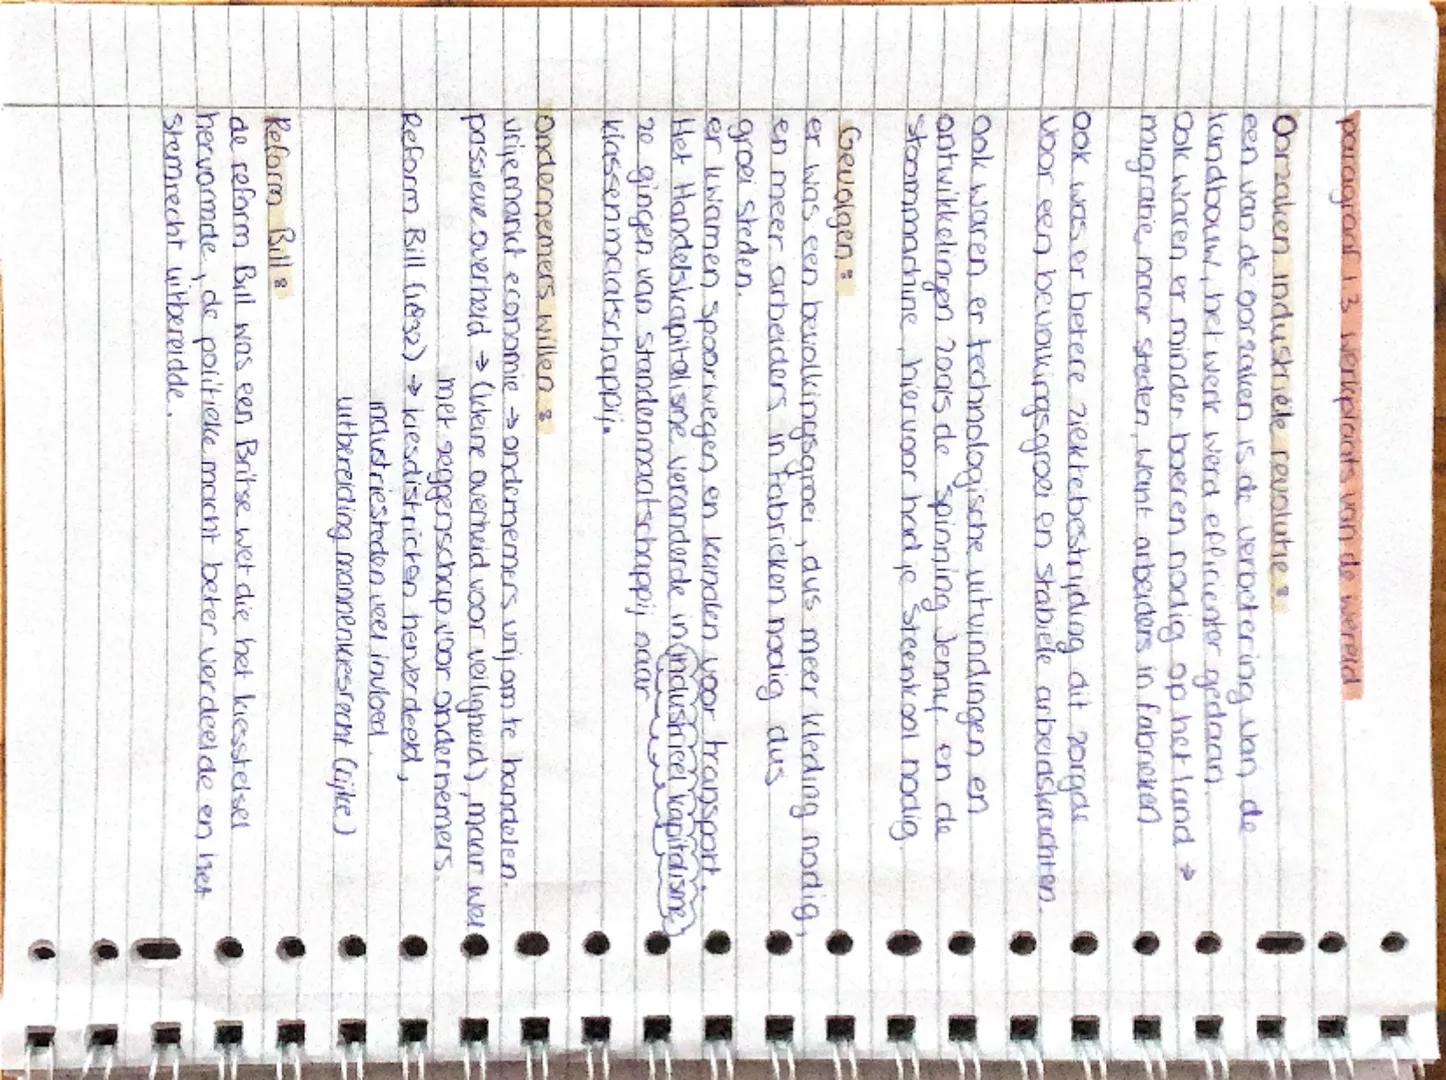 paragraaf 1.3 werkplaats van de wereld
Oorzaken industriële revolutie:
een van de oorzaken is de verbetering van de
landbouw, het werk werd efficienter gedaan.
Ook waren er minder boeren nodig op het land →
migratie naar steden, want arbeiders in fabrieken
ook was er betere ziektebestrijding dit zorgde
voor een bevolkingsgroei en stabiele arbeidskrachten.
Ook waren er technologische uitvindingen en
ontwikkelingen zoals de spinning Jenny en de
stoommachine, hiervoor had je steenkool nodig
Gevolgen:
er was een bevolkingsgroei, dus meer kleding nodig,
en meer arbeiders in fabrieken nodig dus
groei steden.
er kwamen spoorwegen en kanalen voor transport.
Het Handelskapitalisme veranderde in (industrieel kapitalisme)
ze gingen van standenmaatschappij naar
klassenmaatschappij.
Ondernemers willen:
vrije markt economie → ondernemers vrij om te handelen.
passieve overheid → (kleine overheid voor veiligheid), maar wel
met zeggenschap voor ondernemers.
Reform Bill (1832) → kiesdistricten herverdeeld,
industriesteden veel invloed.
uitbereiding mannenkiesrecht (rijke)
Reform Bill:
de reform Bill was een Britse wet die het kiesstelsel
hervormde, de politieke macht beter verdeelde en het
stemrecht uitbereidde.